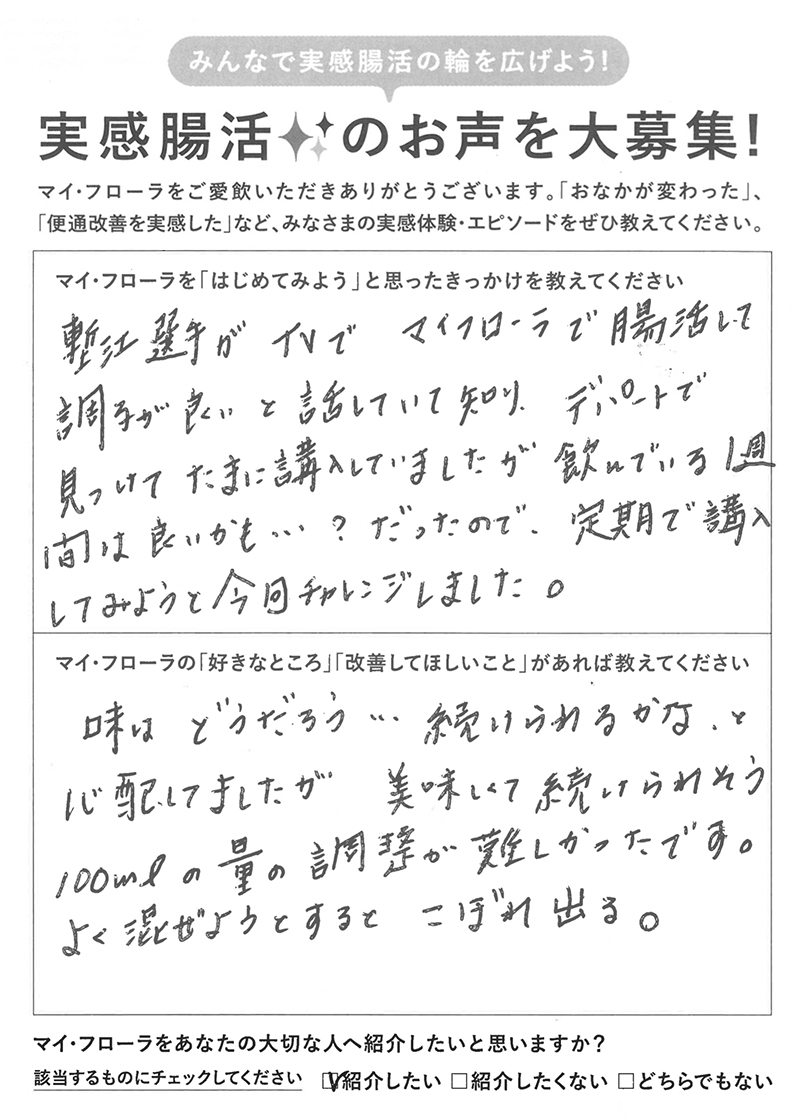 みんなで実感腸活の輪を広げよう!
実感腸活のお声を大募集!
マイ・フローラをご愛飲いただきありがとうございます。「おなかが変わった」、
「便通改善を実感した」など、みなさまの実感体験・エピソードをぜひ教えてください。
マイ・フローラを「はじめてみよう」と思ったきっかけを教えてください
塹江選手が TVで マイフローラで腸活して
調子が良い と 話していて 知り、デパートで
見つけて たまに購入していましたが 飲んでいる 1週
間は 良いかも…? だったので、定期で購入
してみようと今回チャレンジしました。
マイ・フローラの「好きなところ」「改善してほしいこと」があれば教えてください
味は どうだろう… 続けられるかな、と
心配してましたが 美味しくて 続けられそう
100mlの量の調整が難しかったです。
よく混ぜようとすると こぼれ出る。
マイ・フローラをあなたの大切な人へ紹介したいと思いますか?
該当するものにチェックしてください ☑紹介したい □紹介したくない □どちらでもない